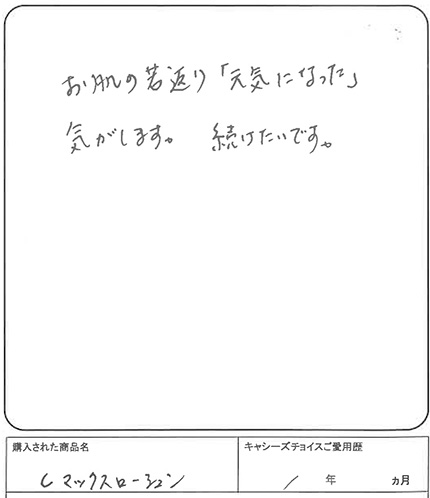 お肌の若返り「元気になった」
気がします。 続けたいです。
購入された商品名
キャシーズチョイスご愛用歴
Cマックスローション
/ 年 ヵ月